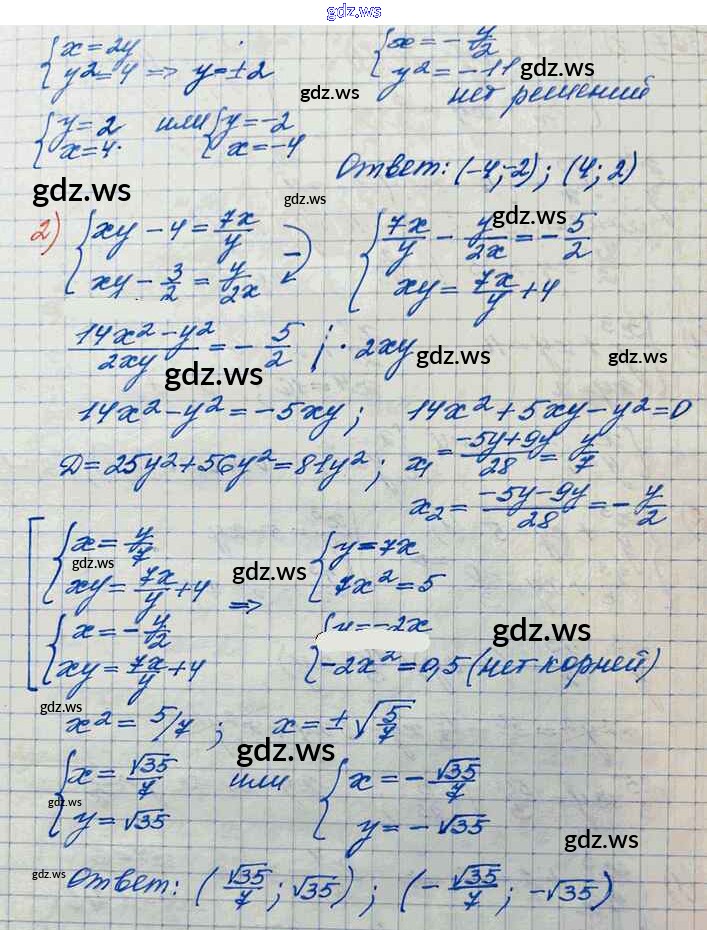 gdz.ws
{ x = 2y
y² = 4 => y = ±2
{ x = - y/2
y² = -11 gdz.ws
нет решений
gdz.ws
{ y = 2
x = 4. или { y = -2
x = -4
Ответ: (-4; -2); (4; 2)
gdz.ws gdz.ws
2) { xy - 4 = 7x/y
xy - 3/2 = y/2x −
{ 7x/y - y/2x = - 5/2 gdz.ws
xy = 7x/y + 4
(14x² - y²)/2xy = - 5/2 | · 2xy gdz.ws gdz.ws
gdz.ws
14x² - y² = -5xy; 14x² + 5xy - y² = 0
D = 25y² + 56y² = 81y²; x₁ = (-5y + 9y)/28 = y/7
x₂ = (-5y - 9y)/28 = - y/2
[ { x = y/7
gdz.ws
xy = 7x/y + 4
{ x = - y/2
xy = 7x/y + 4
=> gdz.ws
{ y = 7x
7x² = 5
{ y = -2x gdz.ws
-2x² = 0,5 (нет корней)
gdz.ws
x² = 5/7; x = ± √(5/7)
gdz.ws
{ x = √35/7
gdz.ws
y = √35
или { x = - √35/7
y = -√35
gdz.ws
gdz.ws Ответ: (√35/7; √35); (- √35/7; -√35)